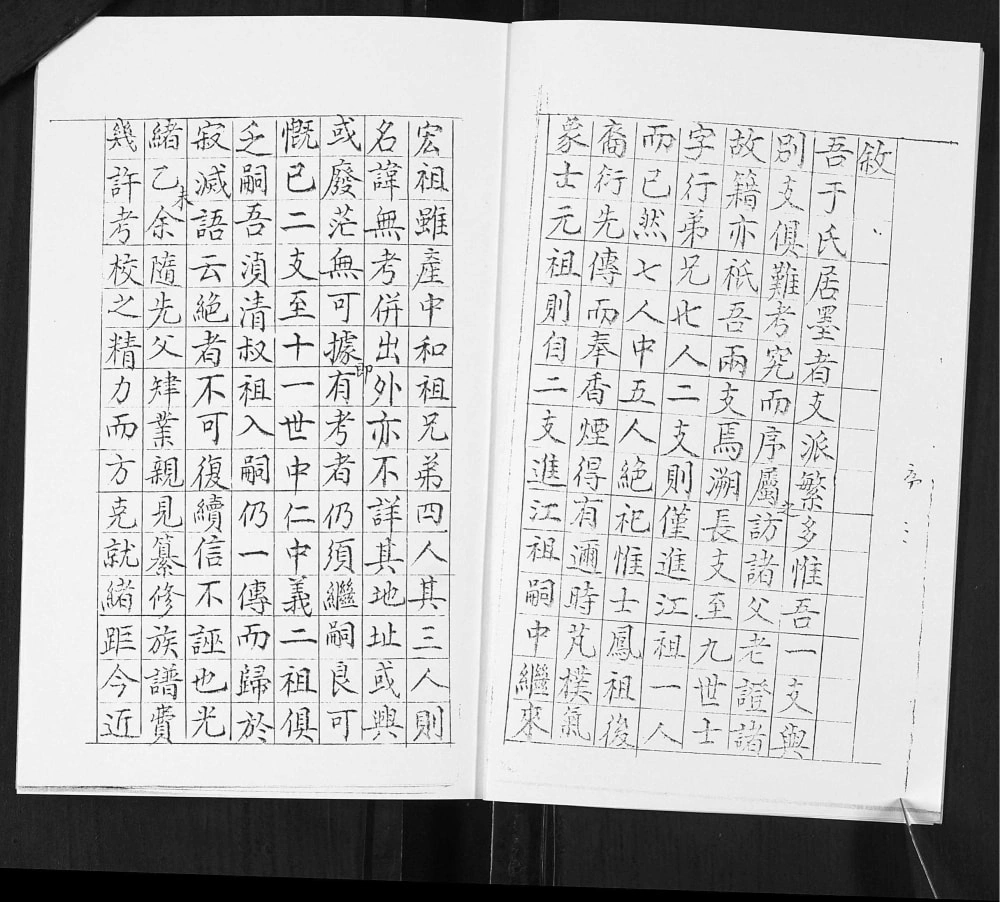 敘
吾于氏居墨者支派繁多惟吾一支與
別支俱難考究而序屬之訪諸父老證諸
故籍亦祇吾兩支焉溯長支至九世士
字行弟兄七人二支則僅進江祖一人
而已然七人中五人絕祀惟士鳳祖後
裔衍先傳而奉香煙得有邇時芃樸氣
象士元祖則自二支進江祖嗣中繼來
序
三
宏祖雖產中和祖兄弟四人其三人則
名諱無考併出外亦不詳其地址或興
或廢茫無可據即有考者仍須繼嗣良可
慨已二支至十一世中仁中義二祖俱
乏嗣吾湞清叔祖入嗣仍一傳而歸於
寂滅語云絕者不可復續信不誣也光
緒乙未余隨先父肄業親見纂修族譜費
幾許考校之精力而方克就緒距今近